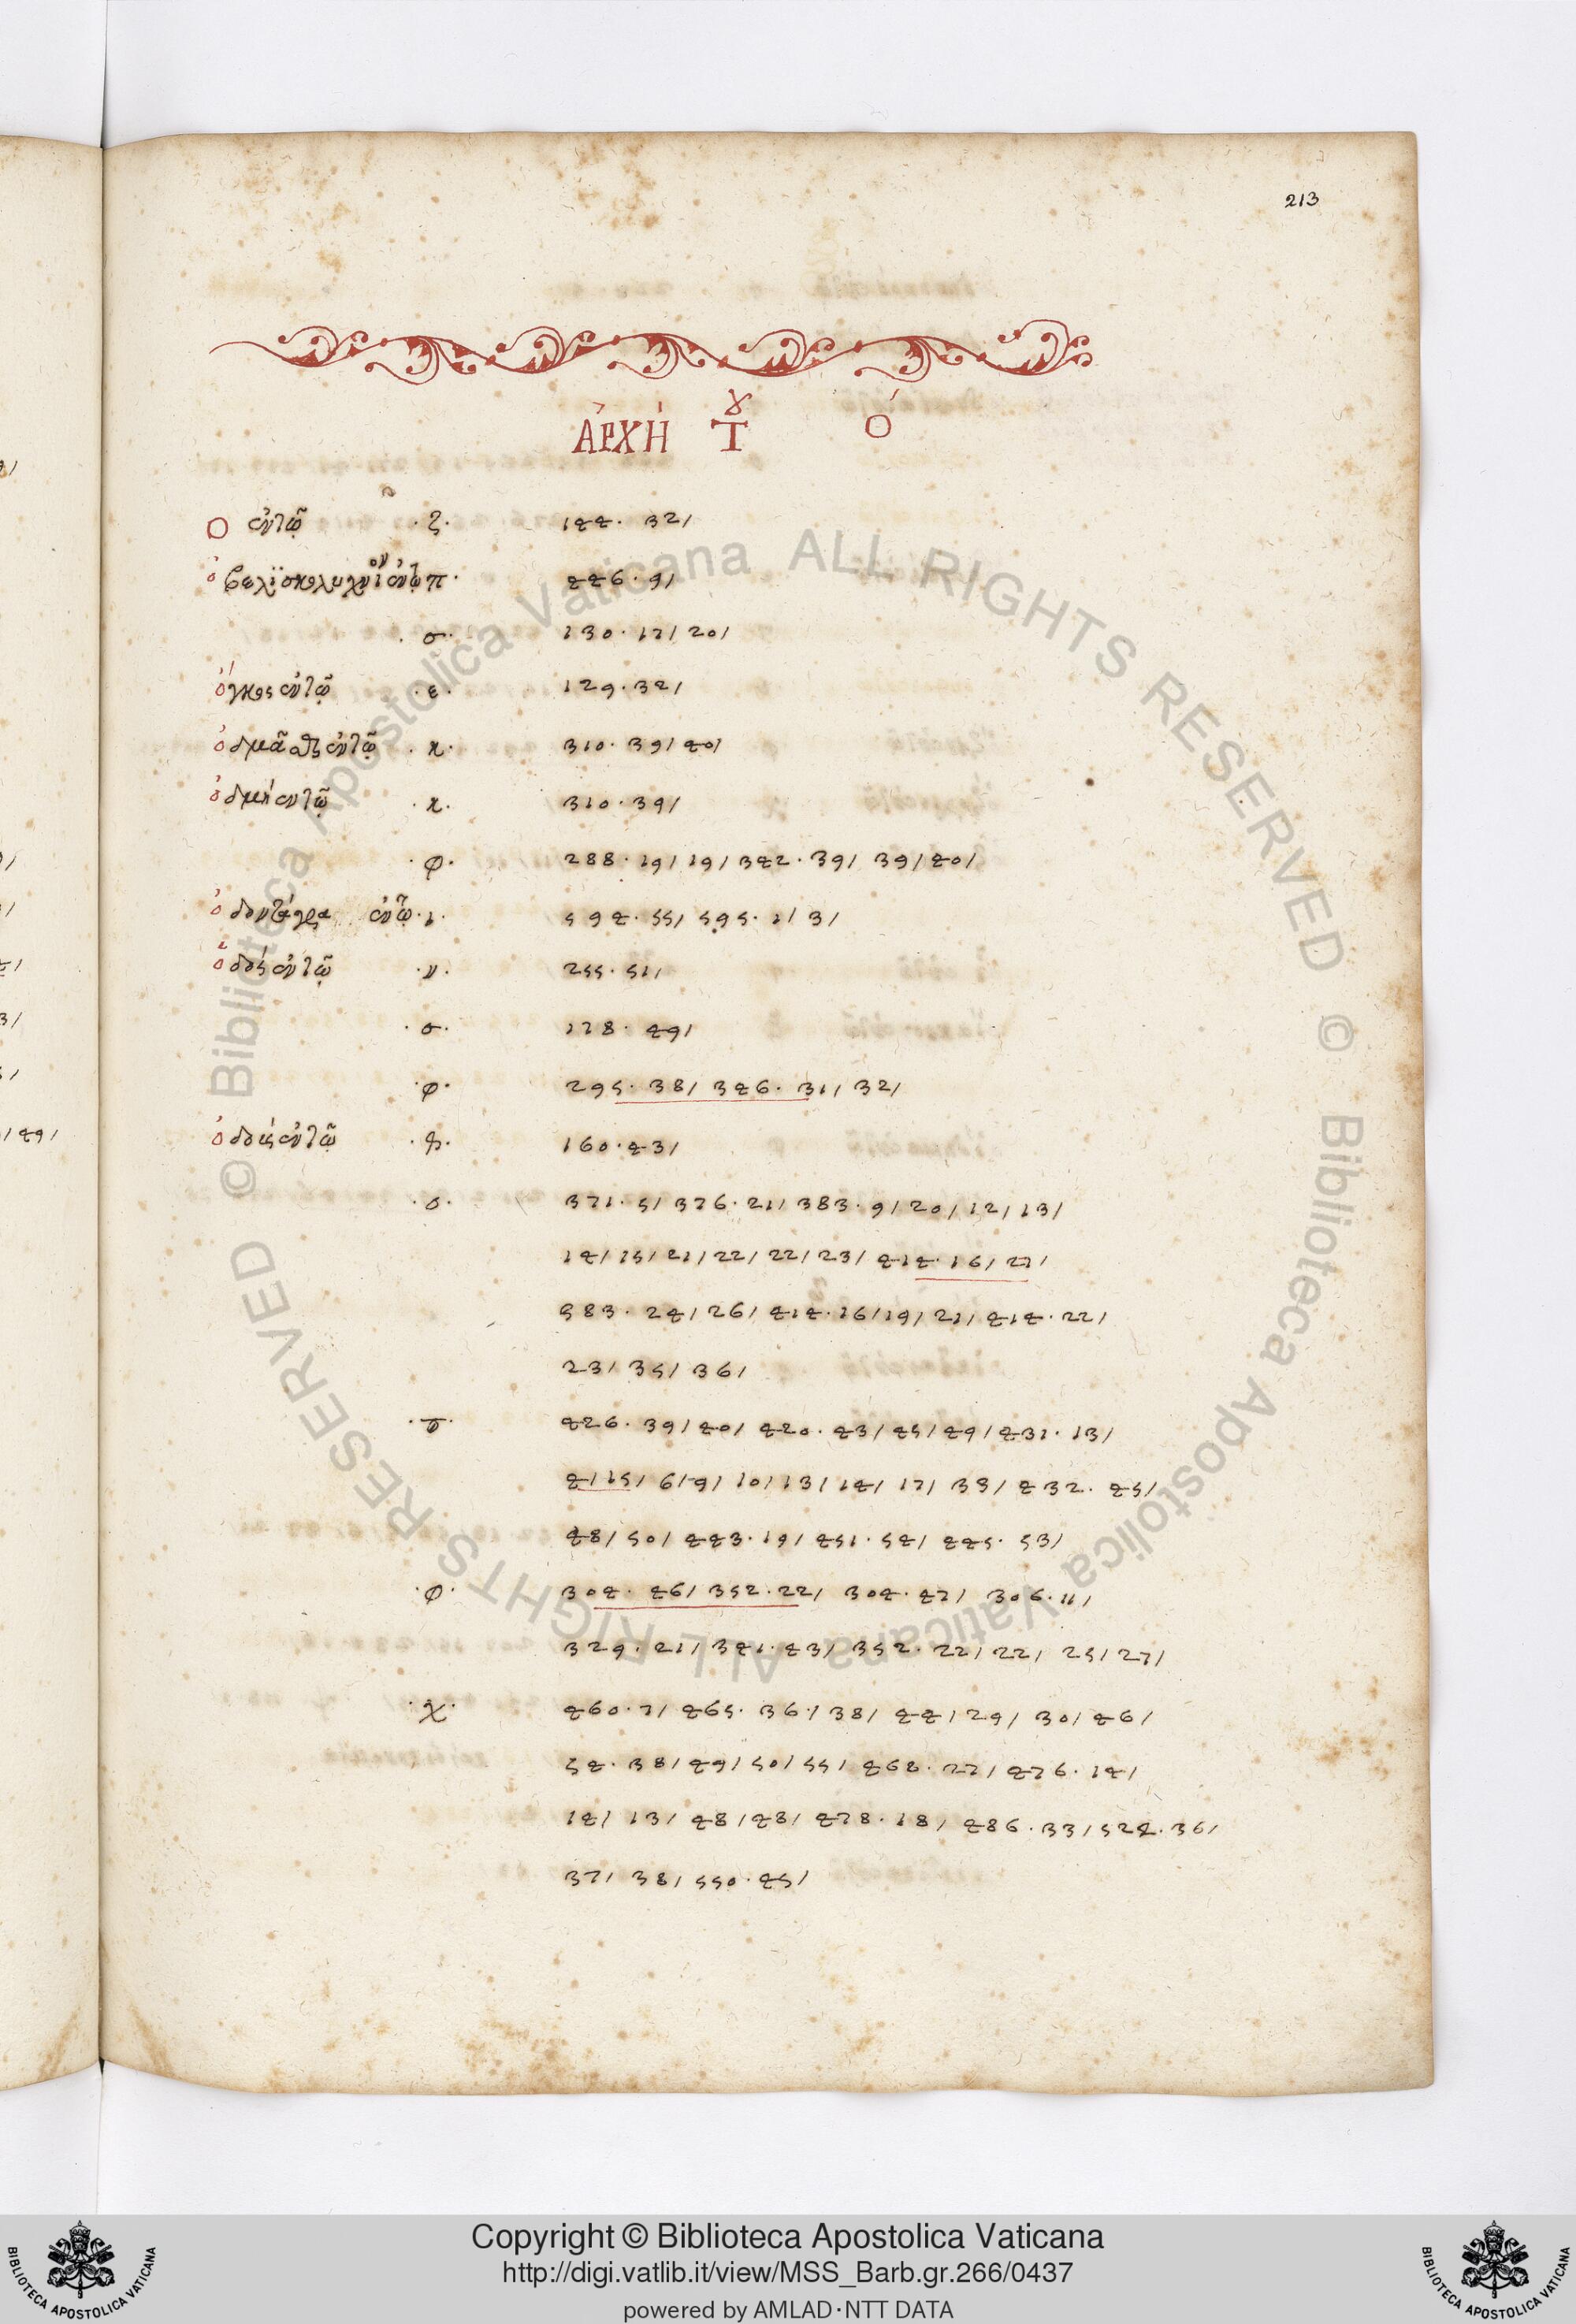 213
ἈΡΧῊ Τȣ Ὁ
Ο ἐν τῷ · ζ · 144 · 32/
ὀβελισκολύχνιον ἐν τῷ π · 446 · 9/
· σ · 130 · 17/ 20/
ὄγκος ἐν τῷ · ε · 129 · 32/
ὀδμᾶσθς ἐν τῷ · κ · 310 · 39/ 40/
ὀδμὴ ἐν τῷ · κ · 310 · 39/
· φ · 288 · 19/ 19/ 342 · 39/ 39/ 40/
ὀδοντάγρα ἐν τῷ · ι · 594 · 55/ 595 · 1/ 3/
ὁδός ἐν τῷ · ν · 255 · 51/
· σ · 178 · 49/
· φ · 295 · 38/ 346 · 31/ 32/
ὀδοὶς ἐν τῷ 160 · 43/
· σ · 371 · 5/ 376 · 21/ 383 · 9/ 20/ 12/ 13/
14/ 15/ 21/ 22/ 22/ 23/ 414 · 16/ 27/
583 · 24/ 26/ 414 · 16/ 19/ 21/ 414 · 22/
23/ 35/ 36/
426 · 39/ 40/ 420 · 43/ 45/ 49/ 431 · 13/
4/ 15/ 6/ 9/ 10/ 13/ 14/ 17/ 33/ 432 · 45/
48/ 50/ 443 · 19/ 451 · 54/ 445 · 53/
· φ · 304 · 46/ 352 · 22/ 304 · 47/ 306 · 11/
329 · 21/ 341 · 43/ 352 · 22/ 22/ 25/ 27/
· χ · 460 · 7/ 465 · 36 ·/ 38/ 44/ 29/ 30/ 46/
54 · 38/ 49/ 50/ 55/ 468 · 27/ 476 · 14/
14/ 13/ 48/ 48/ 478 · 18/ 486 · 33/ 524 · 36/
37/ 38/ 550 · 45/
49/
© Biblioteca Apostolica Vaticana ALL RIGHTS RESERVED © Biblioteca Apostolica Vaticana ALL RIGHTS RESERVED
Copyright © Biblioteca Apostolica Vaticana
http://digi.vatlib.it/view/MSS_Barb.gr.266/0437
powered by AMLAD·NTT DATA
BIBLIOTECA APOSTOLICA VATICANA
BIBLIOTECA APOSTOLICA VATICANA